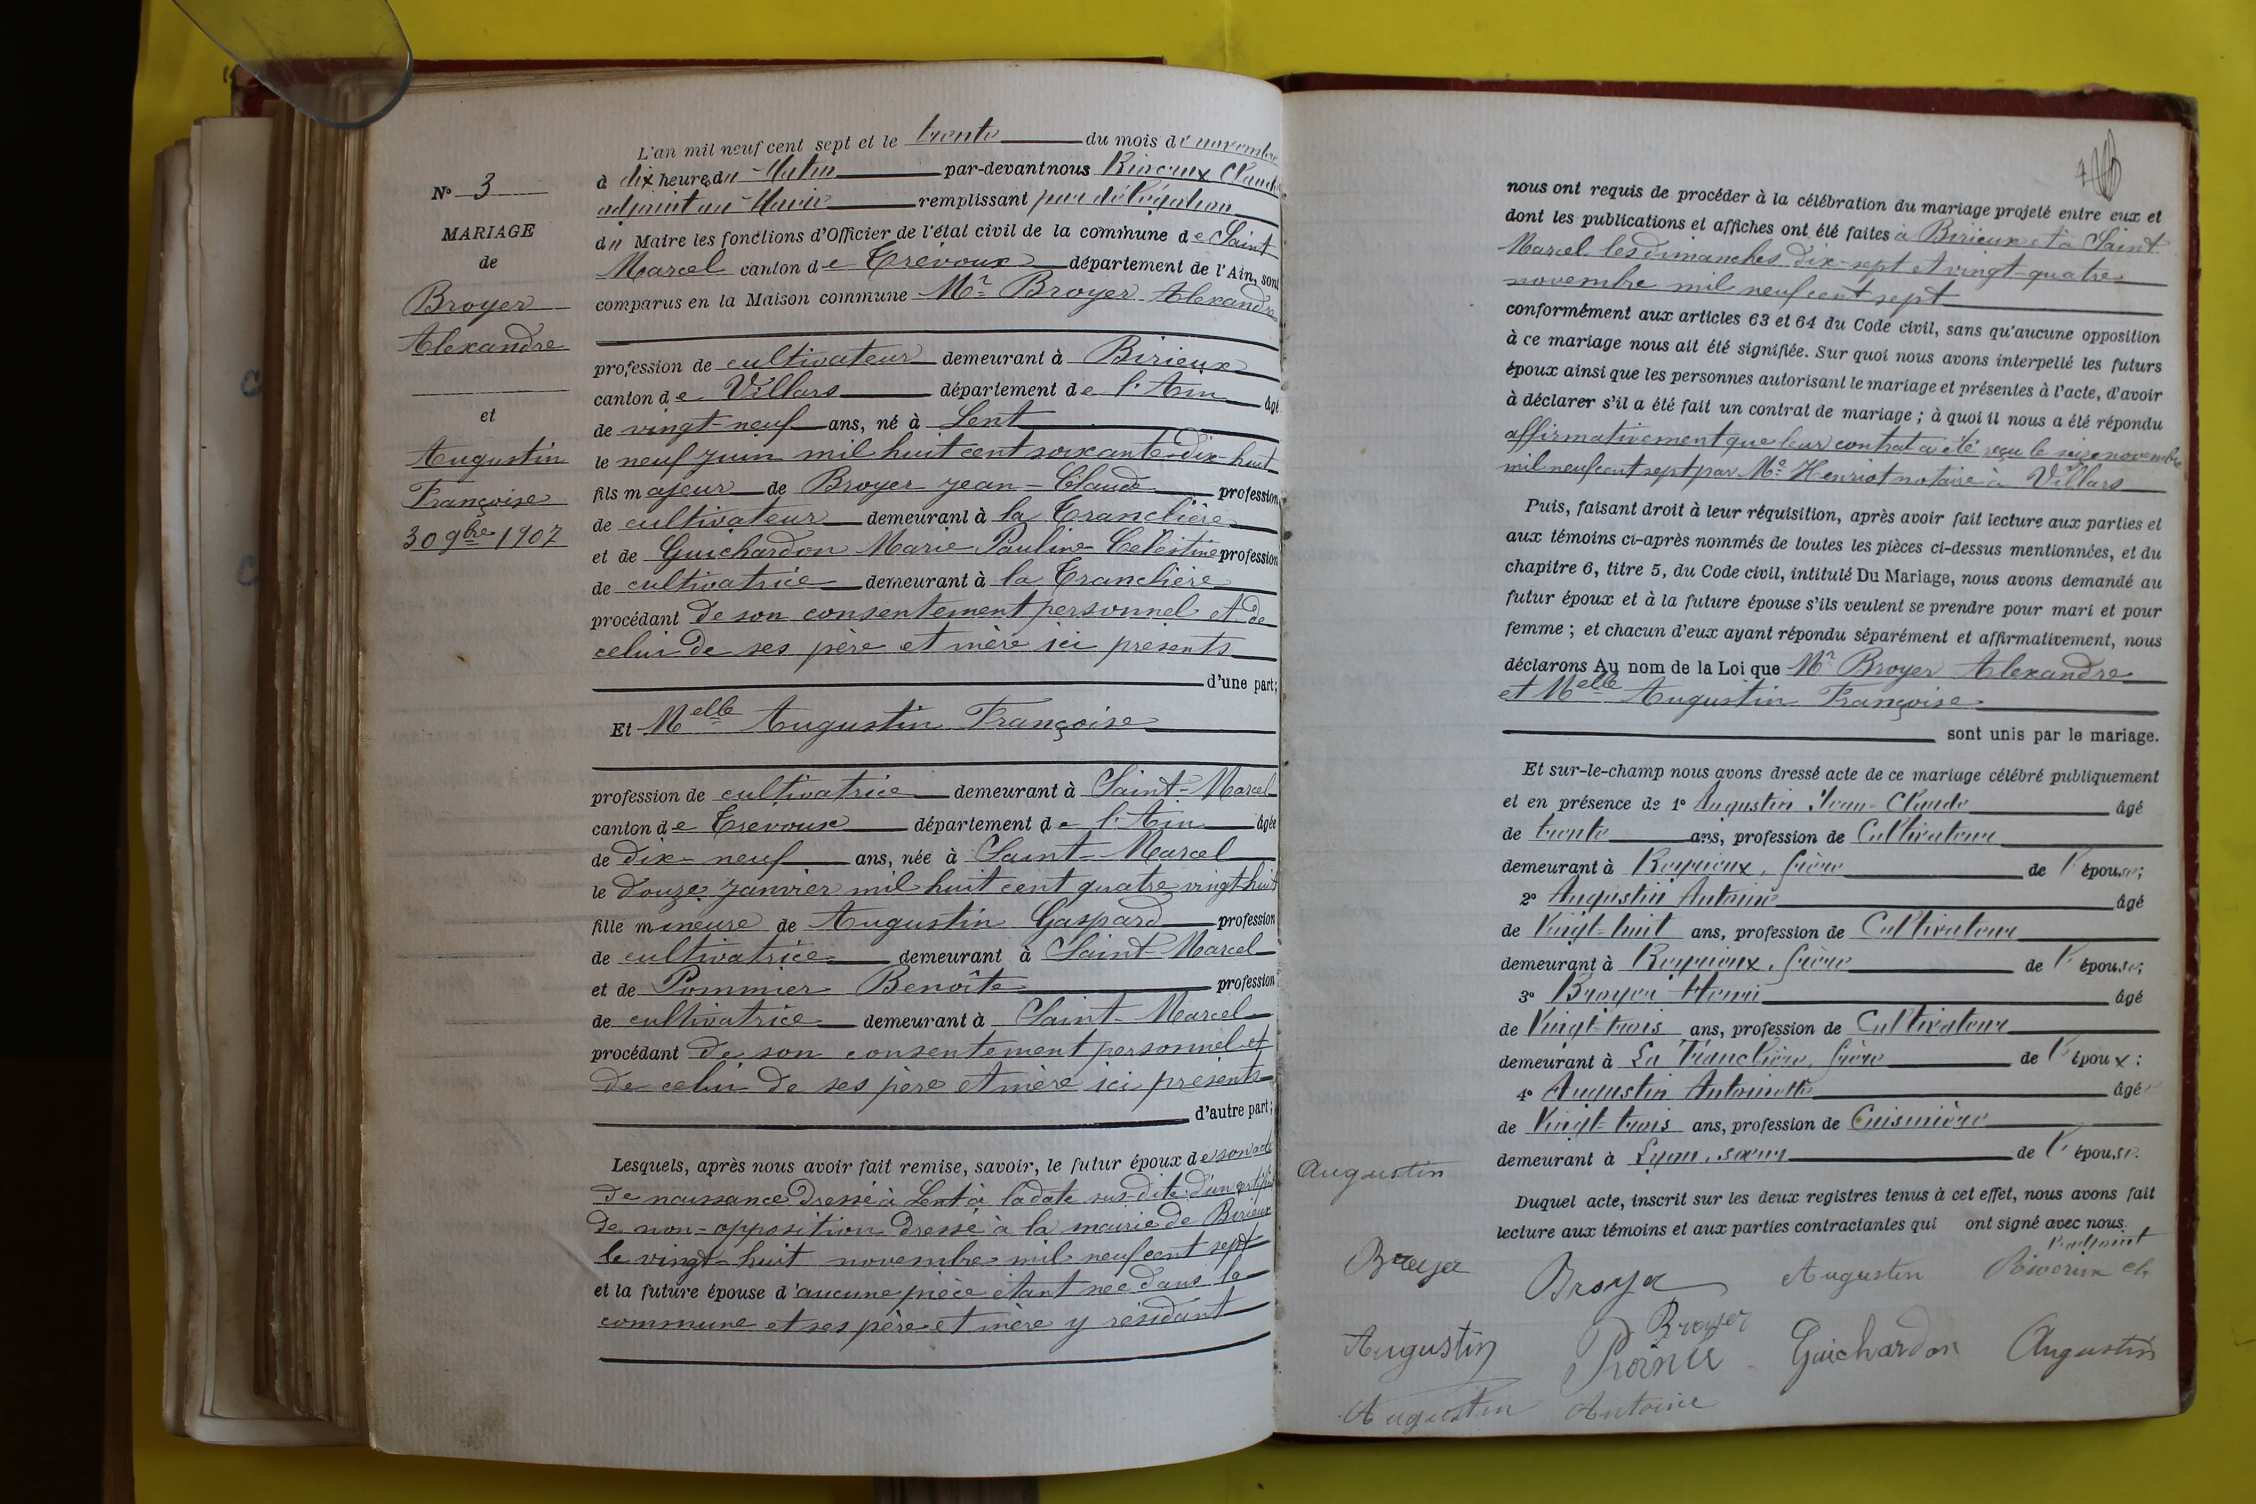 N° 3
MARIAGE
de
Broyer
Alexandre
et
Augustin
Françoise
30 9bre 1907
L'an mil neuf cent sept et le trente du mois de novembre
à dix heures du Matin par-devant nous Rivoux Claude
adjoint au Maire remplissant par délégation
du Maire les fonctions d'Officier de l'état civil de la commune de Saint
Marcel canton de Trévoux département de l'Ain, sont
comparus en la Maison commune Mr Broyer Alexandre
profession de cultivateur demeurant à Birieux
canton de Villars département de l'Ain âgé
de vingt-neuf ans, né à Lent
le neuf juin mil huit cent soixante-dix-huit
fils majeur de Broyer Jean-Claude profession
de cultivateur demeurant à la Tranclière
et de Guichardon Marie Pauline Célestine profession
de cultivatrice demeurant à la Tranclière
procédant de son consentement personnel et de
celui de ses père et mère ici présents
d'une part;
Et Melle Augustin Françoise
profession de cultivatrice demeurant à Saint-Marcel
canton de Trevoux département de l'Ain âgée
de dix-neuf ans, née à Saint-Marcel
le douze janvier mil huit cent quatre vingt huit
fille mineure de Augustin Gaspard profession
de cultivatrice demeurant à Saint-Marcel
et de Pommier Benoîte profession
de cultivatrice demeurant à Saint-Marcel
procédant de son consentement personnel et
de celui de ses père et mère ici présents
d'autre part;
Lesquels, après nous avoir fait remise, savoir, le futur époux de son acte
de naissance dressé à Lent à la date sus-dite d'un certificat
de non-opposition dressé à la mairie de Birieux
le vingt-huit novembre mil neuf cent sept
et la future épouse d'aucune pièce étant née dans la
commune et ses père et mère y résidant
nous ont requis de procéder à la célébration du mariage projeté entre eux et
dont les publications et affiches ont été faites à Birieux et à Saint
Marcel les dimanches dix-sept et vingt-quatre
novembre mil neuf cent sept
conformément aux articles 63 et 64 du Code civil, sans qu'aucune opposition
à ce mariage nous ait été signifiée. Sur quoi nous avons interpellé les futurs
époux ainsi que les personnes autorisant le mariage et présentes à l'acte, d'avoir
à déclarer s'il a été fait un contrat de mariage; à quoi il nous a été répondu
affirmativement que leur contrat a été reçu le novembre
mil neuf cent sept par Me Henriot notaire à Villars
Puis, faisant droit à leur réquisition, après avoir fait lecture aux parties et
aux témoins ci-après nommés de toutes les pièces ci-dessus mentionnées, et du
chapitre 6, titre 5, du Code civil, intitulé Du Mariage, nous avons demandé au
futur époux et à la future épouse s'ils veulent se prendre pour mari et pour
femme; et chacun d'eux ayant répondu séparément et affirmativement, nous
déclarons Au nom de la Loi que Mr Broyer Alexandre
et Melle Augustin Françoise
sont unis par le mariage.
Et sur-le-champ nous avons dressé acte de ce mariage célébré publiquement
et en présence de 1° Augustin Jean-Claude âgé
de trente ans, profession de Cultivateur
demeurant à Reyrieux, frère de l'épouse;
2° Augustin Antoine âgé
de Vingt-huit ans, profession de Cultivateur
demeurant à Reyrieux, frère de l'épouse;
3° Broyer Henri âgé
de Vingt-trois ans, profession de Cultivateur
demeurant à La Tranclière, frère de l'époux:
4° Augustin Antoinette âgée
de Vingt-trois ans, profession de Cuisinière
demeurant à Lyon, sœur de l'épouse.
Duquel acte, inscrit sur les deux registres tenus à cet effet, nous avons fait
lecture aux témoins et aux parties contractantes qui ont signé avec nous.
l'adjoint
Augustin
Broyer Broyer Augustin Rivoux Cl.
Broyer
Augustin Guichardon Augustin
Augustin Antoine